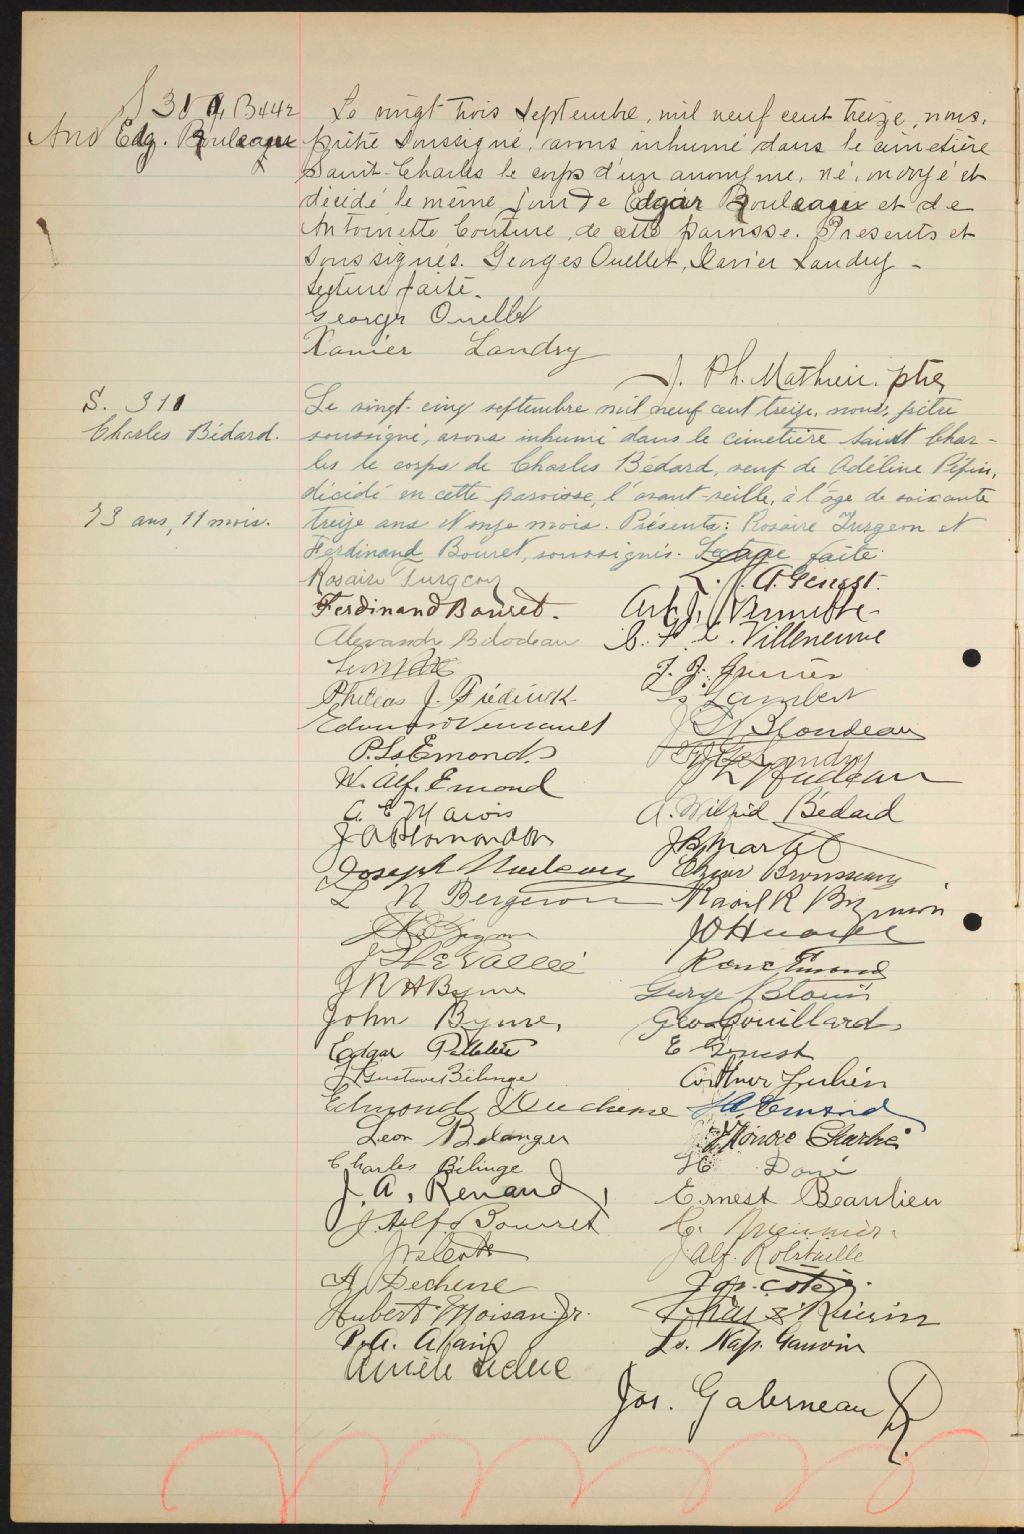 S 310, B442
Ano Edg. Rouleaux
Le vingt trois Septembre, mil neuf cent treize, nous,
prêtre soussigné, avons inhumé dans le cimetière
Saint-Charles le corps d'un anonyme, né, ondoyé et
décédé le même jour de Edgar Rouleaux et de
Antoinette Couture, de cette paroisse. Présents et
soussignés. Georges Ouellet, Xavier Landry -
Lecture faite.
Georges Ouellet
Xavier Landry
J. Ph. Mathieu. ptre,
S. 311
Charles Bédard.
73 ans, 11 mois.
Le vingt-cinq septembre mil neuf cent treize, nous, prêtre
soussigné, avons inhumé dans le cimetière Saint Char-
les le corps de Charles Bédard, veuf de Adéline Pépin,
décédé en cette paroisse, l'avant-veille, à l'âge de soixante
treize ans et onze mois. Présents: Rosaire Turgeon et
Ferdinand Bourret, soussignés. Lecture faite.
Rosaire Turgeon
A. Genest.
Ferdinand Bourret.
Art. J. Vermette
Alexandre Bilodeau
Villeneuve
Philéas J. Frédérick
Ls Lambert
Blondeau
P. Ls Emond.
W. Alf. Emond
Nadeau
A. E Marois
A. Wilfrid Bédard
J A Plamondon
J B Martel
Joseph Nadeau
Brousseau
L N Bergeron
Raoul R
Vallée
René Emond
J R H Byrne
George Blouin
John Byrne,
Geo Drouillard
Edgar Pelletier
E Genest
J Gustave Bélinge
Arthur Julien
Edmond Duchene
Emond
Leon Belanger
Honoré Charles
Charles Bélinge
Doré
J. A. Renaud,
Ernest Beaulieu
J. Alf. Bourret
Meunier.
J. Alf. Robitaille
A Dechene
Jos. Coté.
Hubert Moisan Jr.
P. A. Alain
Ls. Nap. Gauvin
Leduc
Jos. Galerneau